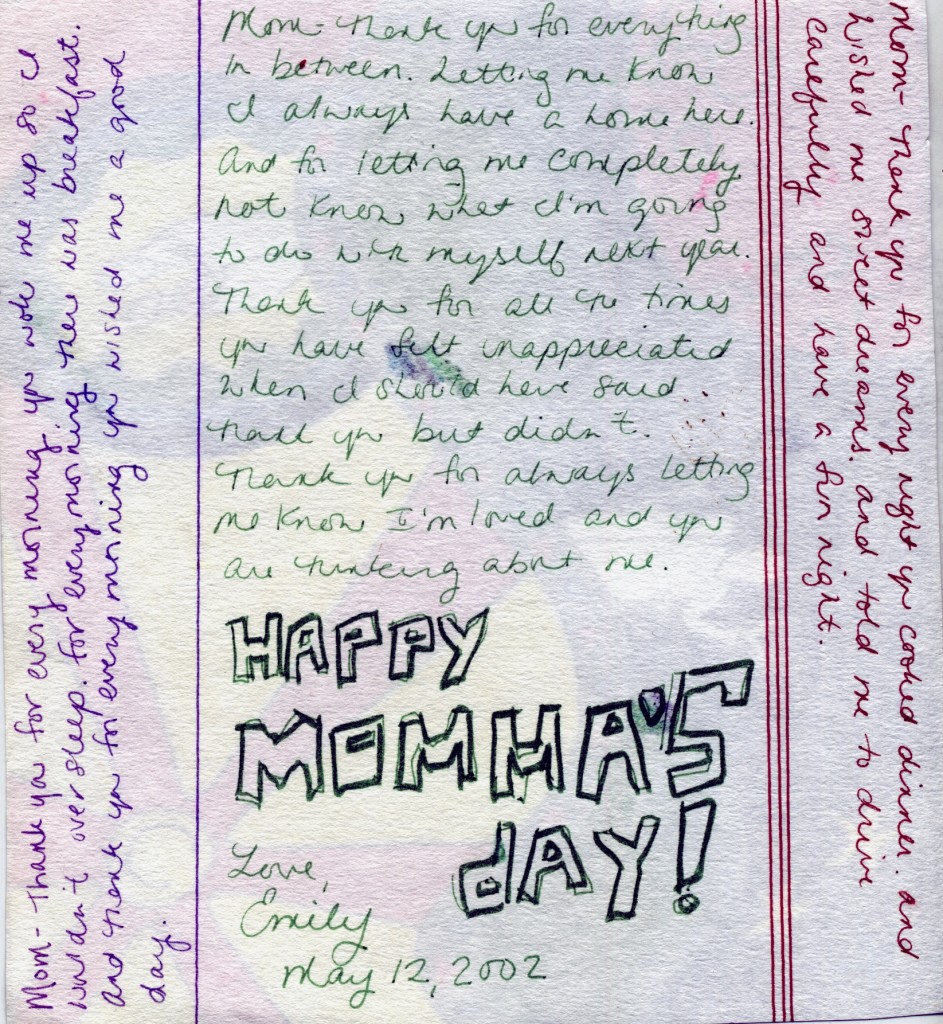 Mom- Thank you for every morning you woke me up so I
wouldn't over sleep. for every morning there was breakfast.
and thank you for every morning you wished me a good
day.
Mom- thank you for everything
in between. Letting me know
I always have a home here.
And for letting me completely
not know what I'm going
to do with myself next year.
Thank you for all the times
you have felt inappreciated
when I should have said..
thank you but didn't.
Thank you for always letting
me know I'm loved and you
are thinking about me.
HAPPY
MOMMA'S
dAY!
Love,
Emily
May 12, 2002
Mom- Thank you for every night you cooked dinner. and
wished me sweet dreams. and told me to drive
carefully and have a fun night.